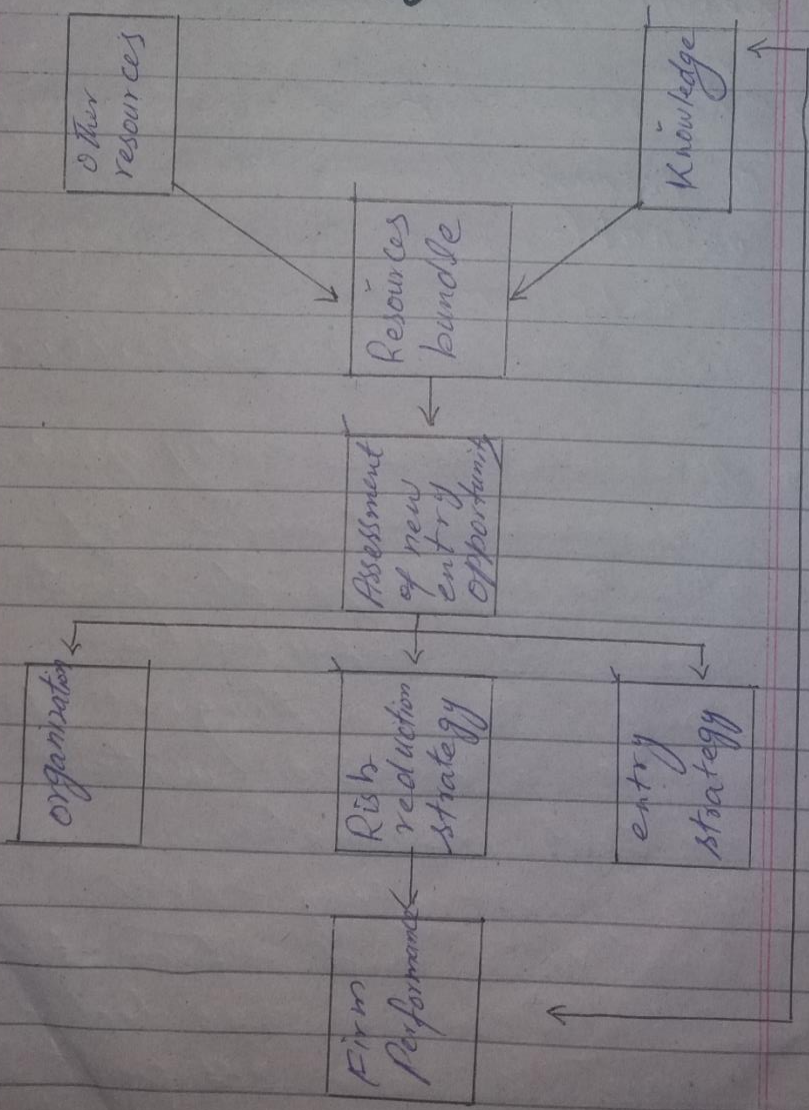 Other
resources
Knowledge
Resources
bundle
Assessment
of new
entry
opportunity
organization
Risk
reduction
strategy
entry
strategy
Firm
Performance